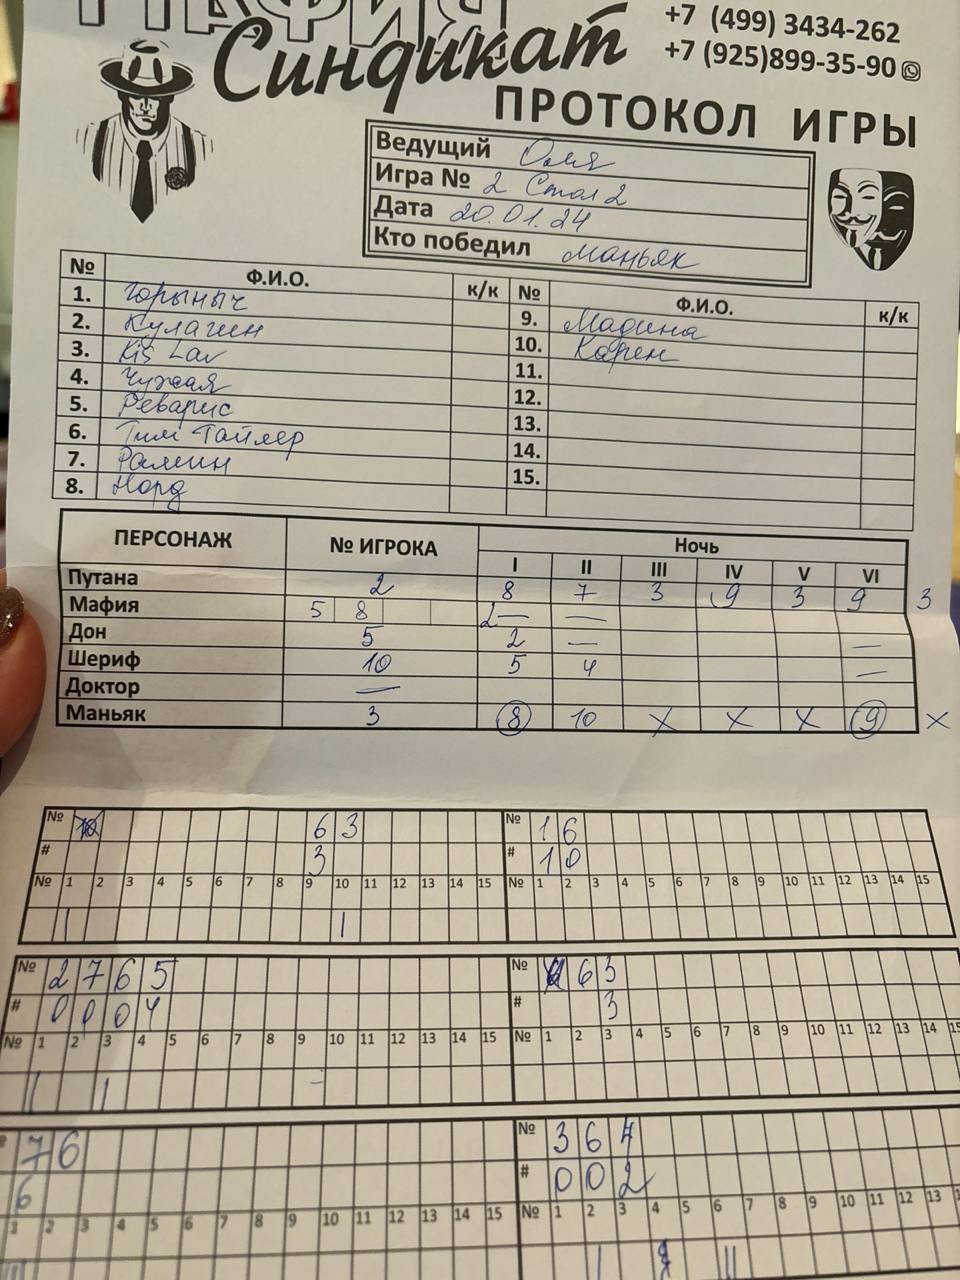 МАФИЯ
Синдикат
+7 (499) 3434-262
+7 (925)899-35-90
ПРОТОКОЛ ИГРЫ
Ведущий Оля
Игра № 2 Стол 2
Дата 20.01.24
Кто победил Маньяк
№ Ф.И.О. к/к № Ф.И.О. к/к
1. Горыныч 9. Мадина
2. Кулагин 10. Карен
3. Kis Lav 11.
4. Чужая 12.
5. Реварис 13.
6. Тим Тайлер 14.
7. Рамин 15.
8. Норд
ПЕРСОНАЖ № ИГРОКА Ночь
I II III IV V VI
Путана 2 8 7 3 9 3 9 3
Мафия 5 8 2 — —
Дон 5 2 — —
Шериф 10 5 4 —
Доктор —
Маньяк 3 8 10 X X X 9 X
№ 6 3 № 1 6
# 3 # 1 0
№ 1 2 3 4 5 6 7 8 9 10 11 12 13 14 15 № 1 2 3 4 5 6 7 8 9 10 11 12 13 14 15
№ 2 7 6 5 № 6 3
# 0 0 0 4 # 3
№ 1 2 3 4 5 6 7 8 9 10 11 12 13 14 15 № 1 2 3 4 5 6 7 8 9 10 11 12 13 14 15
7 6 № 3 6 7
6 # 0 0 2
1 2 3 4 5 6 7 8 9 10 11 12 13 14 15 № 1 2 3 4 5 6 7 8 9 10 11 12 13